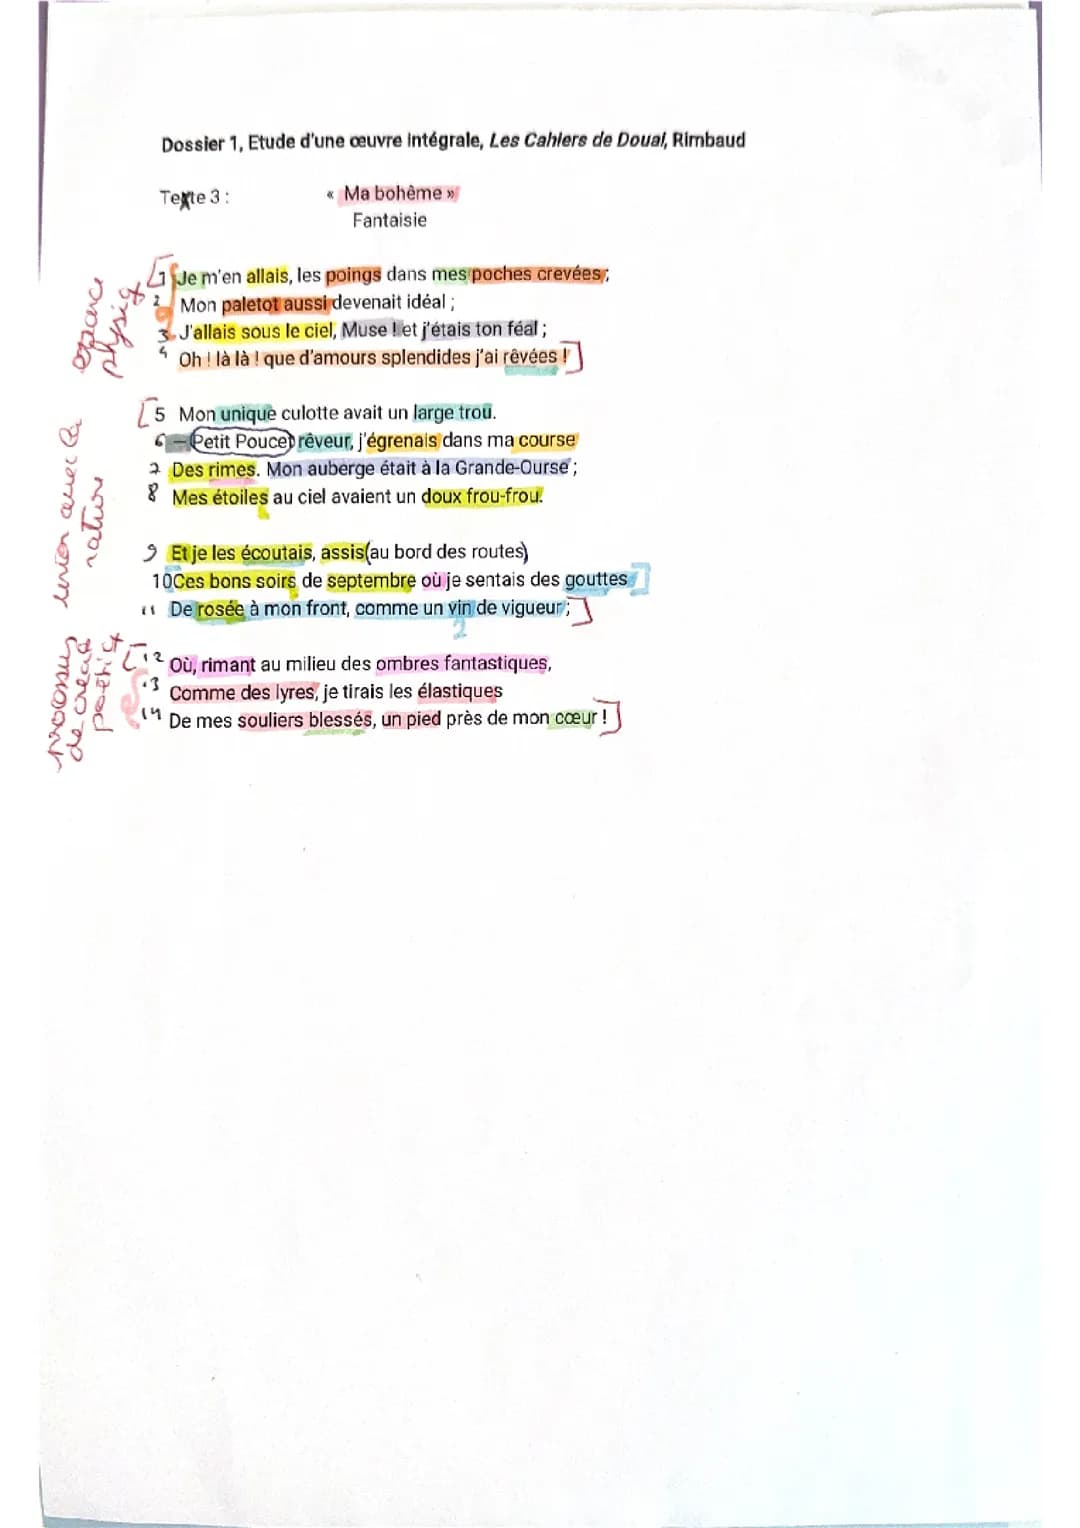 Dossier 1, Etude d'une œuvre intégrale, Les Cahiers de Douai, Rimbaud
Texte 3 :
« Ma bohème »
Fantaisie
1 Je m'en allais, les poings dans mes poches crevées ;
2 Mon paletot aussi devenait idéal ;
3 J'allais sous le ciel, Muse ! et j'étais ton féal ;
4 Oh ! là là ! que d'amours splendides j'ai rêvées !
5 Mon unique culotte avait un large trou.
6 – Petit Poucet rêveur, j'égrenais dans ma course
7 Des rimes. Mon auberge était à la Grande-Ourse ;
8 Mes étoiles au ciel avaient un doux frou-frou.
9 Et je les écoutais, assis au bord des routes
10 Ces bons soirs de septembre où je sentais des gouttes
11 De rosée à mon front, comme un vin de vigueur ;
12 Où, rimant au milieu des ombres fantastiques,
13 Comme des lyres, je tirais les élastiques
14 De mes souliers blessés, un pied près de mon cœur !
espace
physiq
union avec la
nature
processus
de créat
poétiq